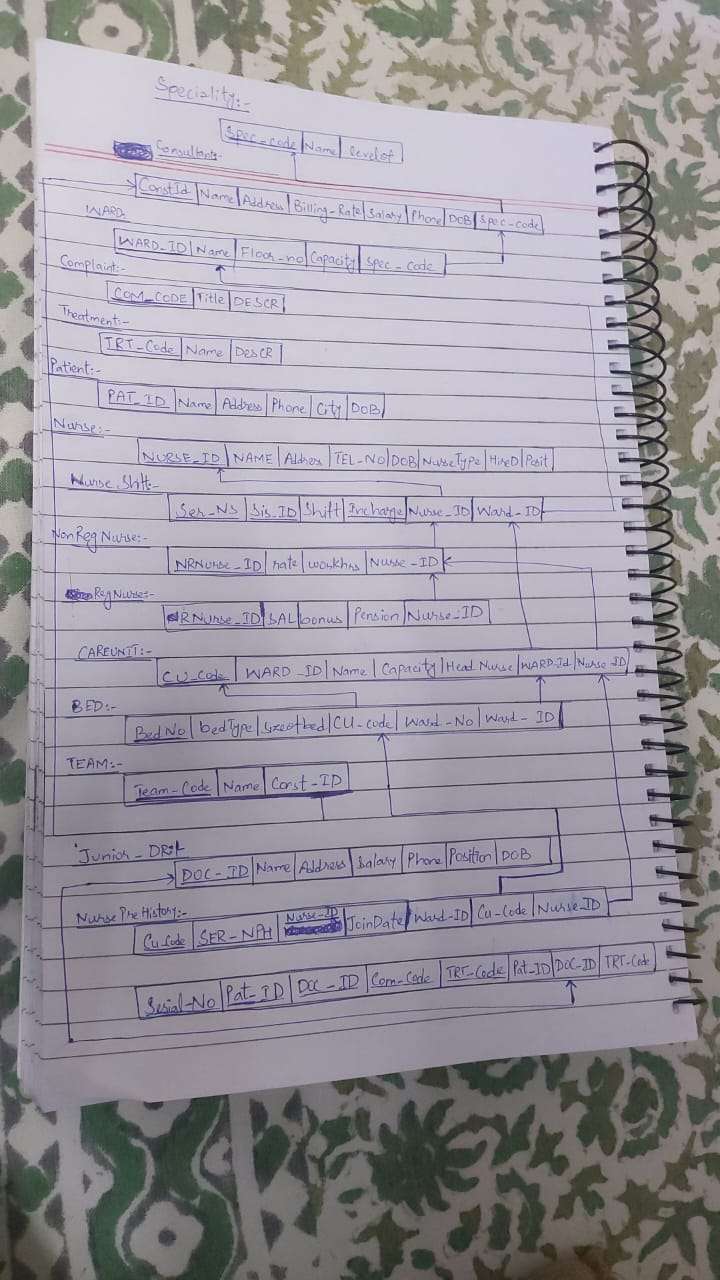 Speciality:-
Spec-code Name
Consultant:-
ConstId Name Address Billing-Rate Salary Phone DOB Spec-code
WARD:
WARD_ID Name Floor-no Capacity Spec-code
Complaint:-
COM_CODE Title DESCR
Treatment:-
TRT-Code Name DesCR
Patient:-
PAT_ID Name Address Phone City DOB
Nurse:-
NURSE_ID NAME TEL-NO DOB NurseType HireD Posit
Nurse Shift:-
Sis_ID Shift Incharge Nurse_ID Ward-ID
NonRegNurse:-
NRNurse_ID rate workhrs Nurse-ID
RegNurse:-
RNurse_ID SAL bonus Pension Nurse_ID
CAREUNIT:-
CU_Code WARD_ID Name Capacity Head Nurse WARD-Id Nurse-ID
BED:-
BedNo bedType sizeofbed CU-code Ward-No Ward-ID
TEAM:-
Team-Code Name Const-ID
Junior-DR:-
DOC-ID Name Address Salary Phone Position DOB
Nurse Pre History:-
Cu-Code SER-NPH Nurse-ID JoinDate Ward-ID Cu-Code Nurse_ID
Serial-No Pat_ID DOC-ID Com-Code TRT-Code Pat_ID DOC-ID TRT-Code